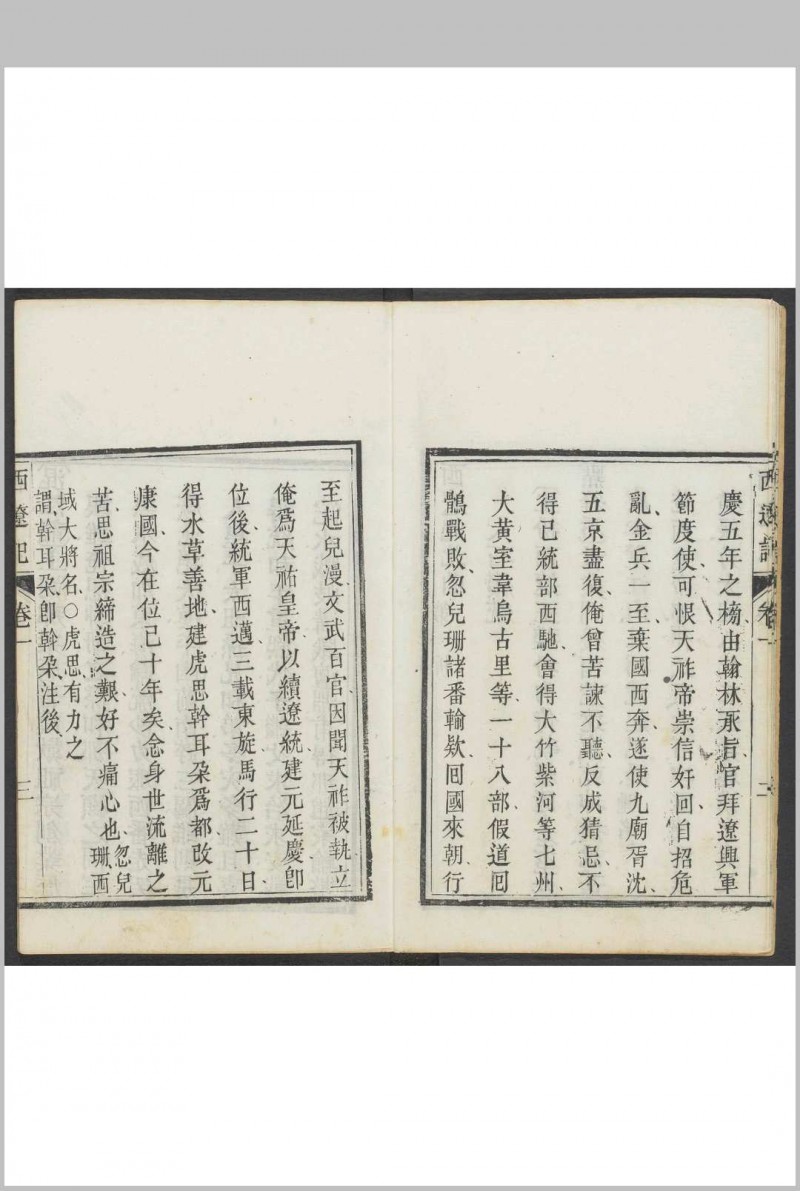 慶五年之榜、由翰林承旨、官拜遼興軍
節度使、可恨天祚帝崇信奸回、自招危
亂、金兵一至、棄國西奔、遂使九廟胥沈、
五京盡復、俺曾苦諫不聽、反成猜忌、不
得已統部西馳、會得大竹紫河等七州、
大黃室韋烏古里等、一十八部、假道回
鶻、戰敗、忽兒珊諸番、輸欵、回國來朝、行
至起兒漫、文武百官、因聞天祚被執、立
俺爲天祐皇帝、以續遼統、建元延慶、卽
位後、統軍西邁、三載東旋、馬行二十日、
得水草善地、建虎思斡耳朶爲都、改元
康國、今在位已十年矣、念身世流離之
苦、思祖宗締造之艱、好不痛心也、忽兒
珊、西
域大將名、○虎思有力之
謂、斡耳朶卽斡朶、注後、
西遼記 卷一 三
西遼記 卷一